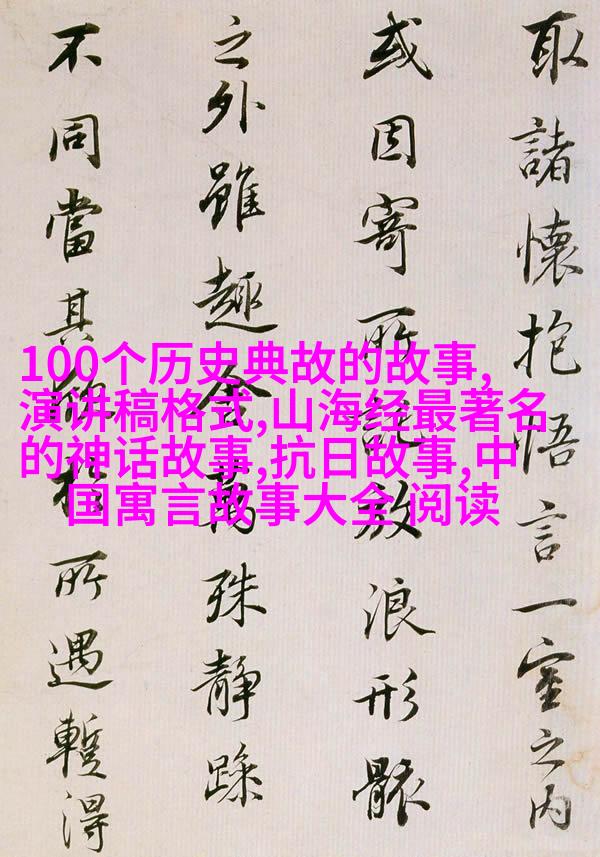 取諸懷抱悟言一室之内
或因寄所託放浪形骸
之外雖趣舍萬殊静躁
不同當其欣於所遇暫得
100个历史典故的故事,
演讲稿格式,山海经最著名
的神话故事,抗日故事,中
国寓言故事大全 阅读